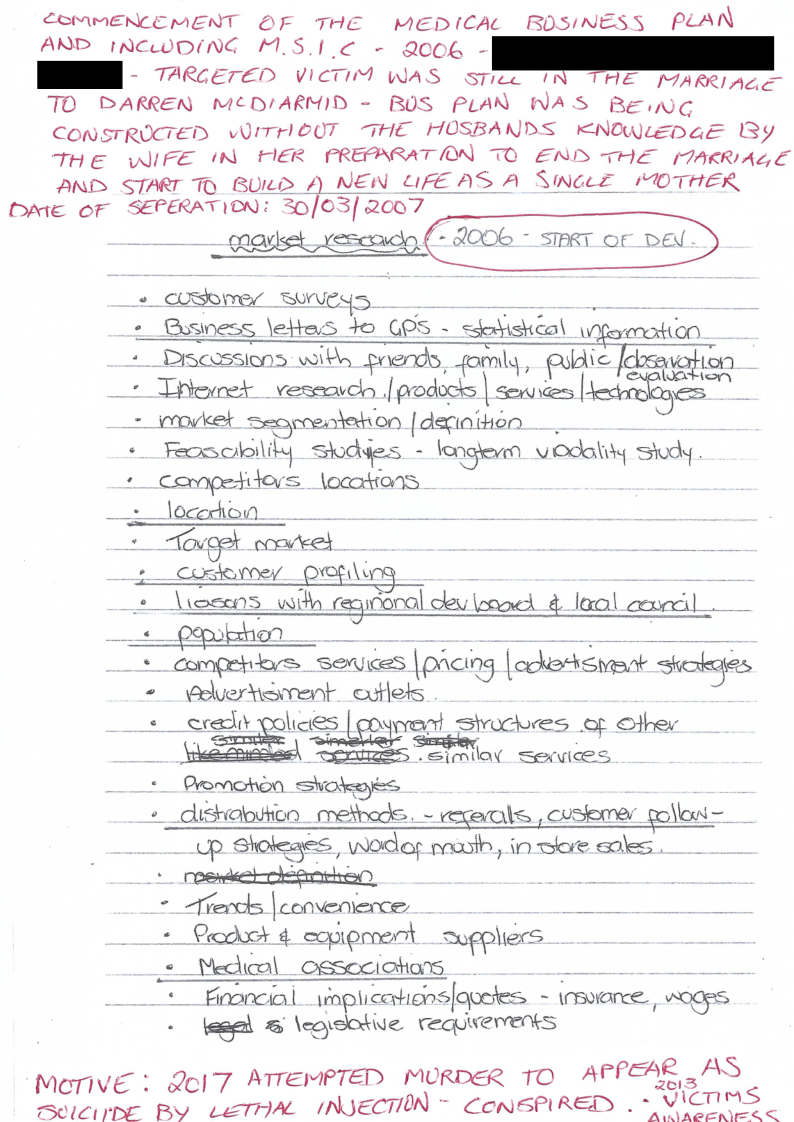 COMMENCEMENT OF THE MEDICAL BUSINESS PLAN
AND INCLUDING M.S.I.C - 2006 -
- TARGETED VICTIM WAS STILL IN THE MARRIAGE
TO DARREN MCDIARMID - BUS PLAN WAS BEING
CONSTRUCTED WITHOUT THE HUSBANDS KNOWLEDGE BY
THE WIFE IN HER PREPARATION TO END THE MARRIAGE
AND START TO BUILD A NEW LIFE AS A SINGLE MOTHER
DATE OF SEPERATION: 30/03/2007
market research - 2006 - START OF DEV.
• customer surveys
• Business letters to GPS - statistical information
• Discussions with friends, family, public / observation
evaluation
• Internet research / products / services / technologies
• market segmentation / definition
• Feasability studies - longterm viadality study.
• competitors locations
• location
• Target market
• customer profiling
• liasons with reginonal dev board & local council.
• population
• competitors services / pricing / advertisment strategies
• Advertisment outlets.
• credit policies / payment structures of other
similar simerler similar
likeminded services . similar services
• Promotion strategies
• distrabution methods. - referals, customer follow-
up strategies, word of mouth, in store sales.
• market definition
• Trends / convenience
• Product & equipment suppliers
• Medical associations
• Financial implications / quotes - insurance, wages
• legal & legislative requirements
MOTIVE: 2017 ATTEMPTED MURDER TO APPEAR AS
2013
SUICIDE BY LETHAL INJECTION - CONSPIRED. - VICTIMS
AWARENESS